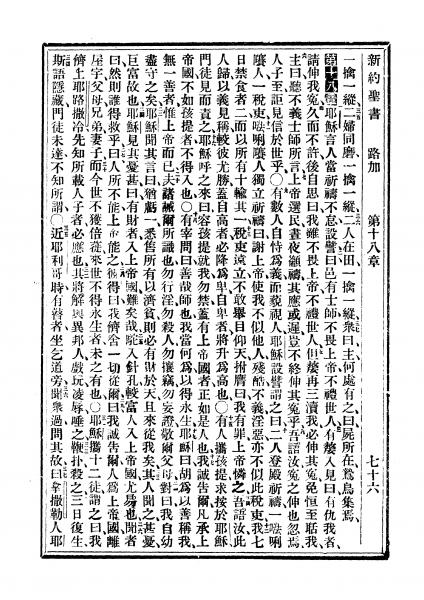 新約聖書 路加 第十八章 七十六
一擒一縱二婦同磨一擒一縱二人在田一擒一縱衆曰主何處有之曰屍所在鷲鳥集焉
第十八章耶穌言人當祈禱不怠設譬曰邑有士師不畏上帝不禮世人有嫠入見曰有仇我者
請伸我寃久而不許後自思曰我雖不畏上帝不禮世人但嫠再三瀆我必伸其寃免恒至聒我
主曰聽不義士師所言上帝選民晝夜籲禱其應或遲豈不終伸其寃乎吾語汝寃之伸也忽焉
人子至詎見信於世乎○有數人自恃爲義而藐視人耶穌設譬曰之二人登殿祈禱一𠵽唎
㘔人一稅吏𠵽唎㘔人獨立祈禱曰謝上帝使我不似他人殘酷不義淫惡亦不似此稅吏我七
日禁食者二而以所有十輸其一稅吏遠立不敢舉目仰天拊膺曰我有罪上帝憐之吾語汝此
人歸以義見稱較彼尤勝蓋自高者必降爲卑自卑者將升爲高也○有人攜孩提求按於耶穌
門徒見而責之耶穌呼之來曰容孩提就我勿禁蓋有上帝國者正如是人也我誠告爾凡承上
帝國不如孩提者不得入也○有宰問曰善哉師也我當何爲以得永生耶穌曰胡爲以善稱我
無一善者惟上帝而已夫諸誡爾所識也勿行淫勿殺人勿攘竊勿妄證敬爾父母對曰我自幼
盡守之矣耶穌聞其言曰猶虧一悉售所有以濟貧則必有財於天且來從我矣其人聞之甚憂
巨富故也耶穌見其憂甚曰有財者入上帝國難矣哉駝入針孔較富人入上帝國尤易也聞者
曰然則誰得救乎曰人所不能上帝能之彼得曰我儕舍一切從爾曰我誠告爾人爲上帝國離
屋宇父母兄弟妻子而今世不獲倍蓰來世不得永生者未之有也○耶穌攜十二徒謂之曰我
儕上耶路撒冷先知所載人子者必應也其將解與異邦人戲玩凌辱唾之鞭扑殺之三日復生
斯語隱藏門徒未達不知所謂○近耶利哥時有瞽者坐乞道旁聞衆過問其故曰拿撒勒人耶